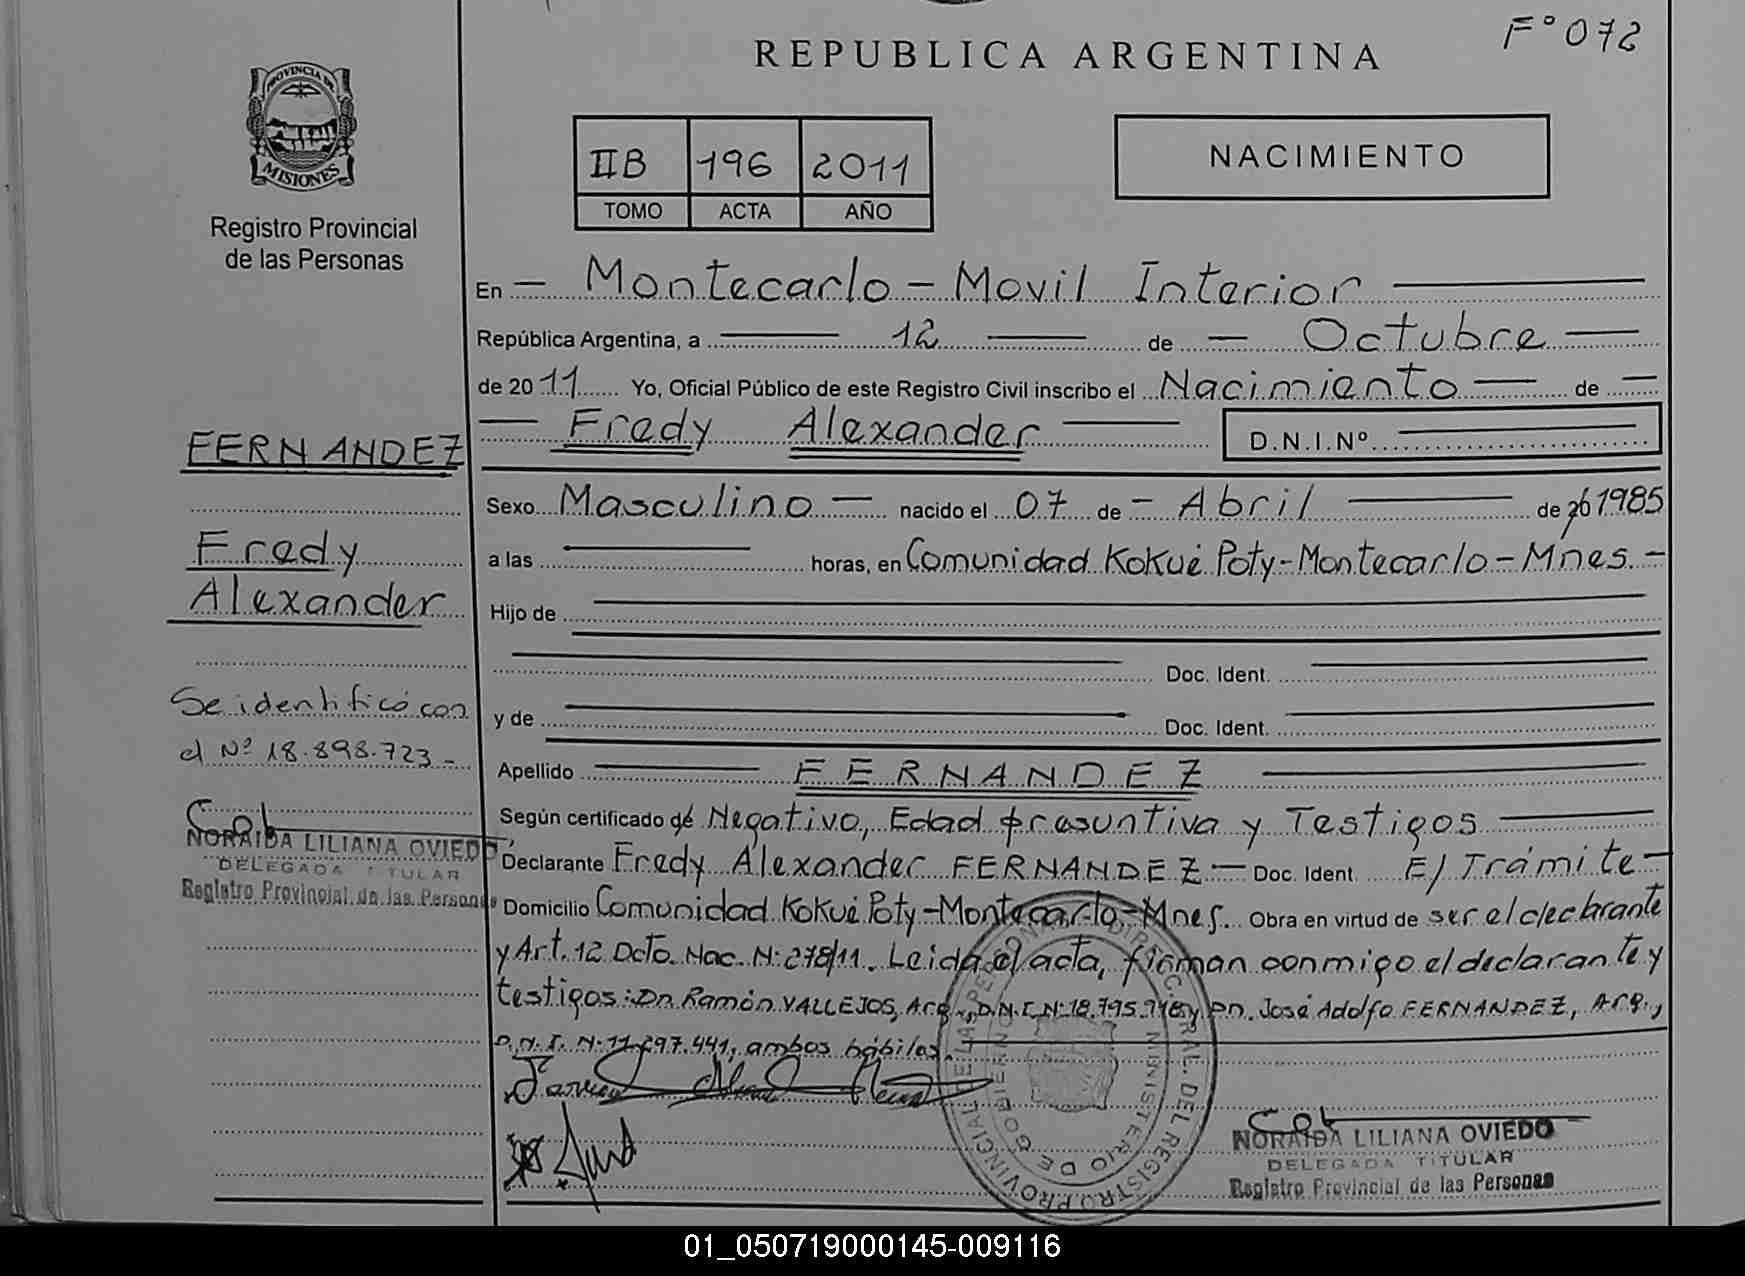 F° 072
REPUBLICA ARGENTINA
PROVINCIA DE
MISIONES
Registro Provincial
de las Personas
IIB 196 2011
TOMO ACTA AÑO
NACIMIENTO
En — Montecarlo - Movil Interior
República Argentina, a 12 de Octubre
de 2011 Yo, Oficial Público de este Registro Civil inscribo el Nacimiento de
Fredy Alexander D.N.I.Nº
FERNANDEZ
Fredy
Alexander
Se identificó con
el Nº 18.898.723 -
NORAIDA LILIANA OVIEDO
DELEGADA TITULAR
Registro Provincial de las Personas
Sexo Masculino — nacido el 07 de - Abril de 1985
a las horas, en Comunidad Kokué Poty - Montecarlo - Mnes. -
Hijo de
Doc. Ident.
y de Doc. Ident.
Apellido FERNANDEZ
Según certificado de Negativo, Edad presuntiva y Testigos
Declarante Fredy Alexander FERNANDEZ - Doc. Ident. E/ Trámite -
Domicilio Comunidad Kokué Poty - Montecarlo - Mnes. Obra en virtud de ser el declarante
y Art. 12 Dcto. Nac. N: 278/11. Leida el acta, firman conmigo el declarante y
testigos: Dn. Ramón VALLEJOS, Arg., D.N.I. N: 18.795. y Dn. José Adolfo FERNANDEZ, Arg.,
D.N.I. N: 11.297.441, ambos hábiles.
DIRECC GRAL. DEL REGISTRO PROVINCIAL DE LAS PERSONAS
MINISTERIO DE GOBIERNO
NORAIDA LILIANA OVIEDO
DELEGADA TITULAR
Registro Provincial de las Personas
01_050719000145-009116